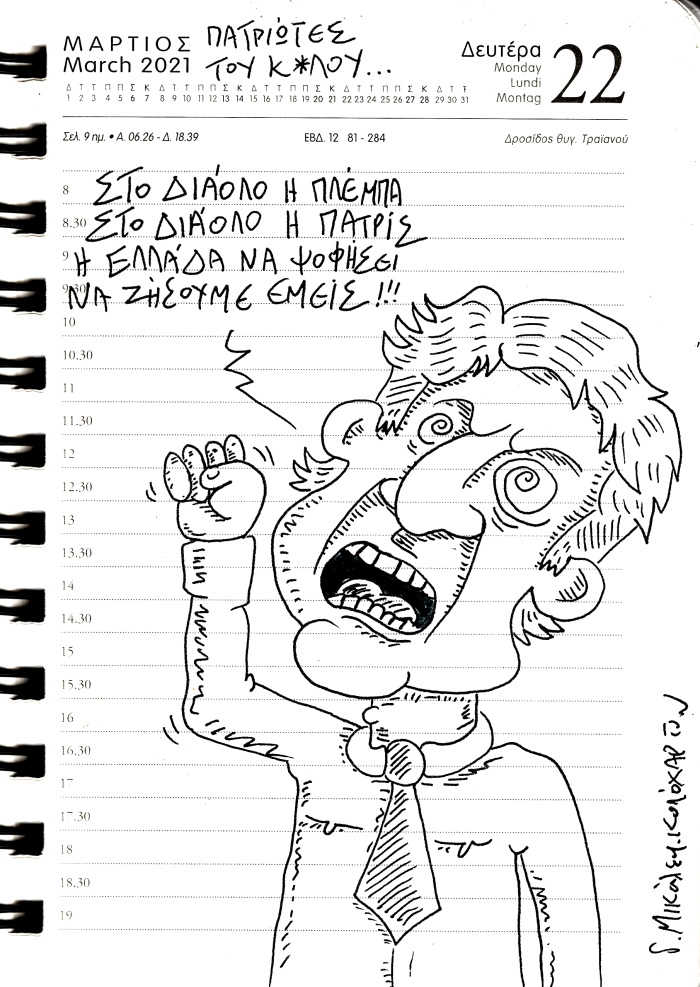 ΜΑΡΤΙΟΣ
March 2021
ΠΑΤΡΙΩΤΕΣ
ΤΟΥ Κ*ΛΟΥ...
Δευτέρα
Monday
Lundi
Montag
22
Δ Τ Τ Π Π Σ Κ Δ Τ Τ Π Π Σ Κ Δ Τ Τ Π Π Σ Κ Δ Τ Τ Π Π Σ Κ Δ Τ Τ
1 2 3 4 5 6 7 8 9 10 11 12 13 14 15 16 17 18 19 20 21 22 23 24 25 26 27 28 29 30 31
Σελ. 9 ημ. • Α. 06.26 - Δ. 18.39
ΕΒΔ. 12 81 - 284
Δροσίδος θυγ. Τραϊανού
8 ΣΤΟ ΔΙΑΟΛΟ Η ΠΛΕΜΠΑ
8.30 ΣΤΟ ΔΙΑΟΛΟ Η ΠΑΤΡΙΣ
9 Η ΕΛΛΑΔΑ ΝΑ ΨΟΦΗΣΕΙ
9.30 ΝΑ ΖΗΣΟΥΜΕ ΕΜΕΙΣ!!!
10
10.30
11
11.30
12
12.30
13
13.30
14
14.30
15
15.30
16
16.30
17
17.30
18
18.30
19